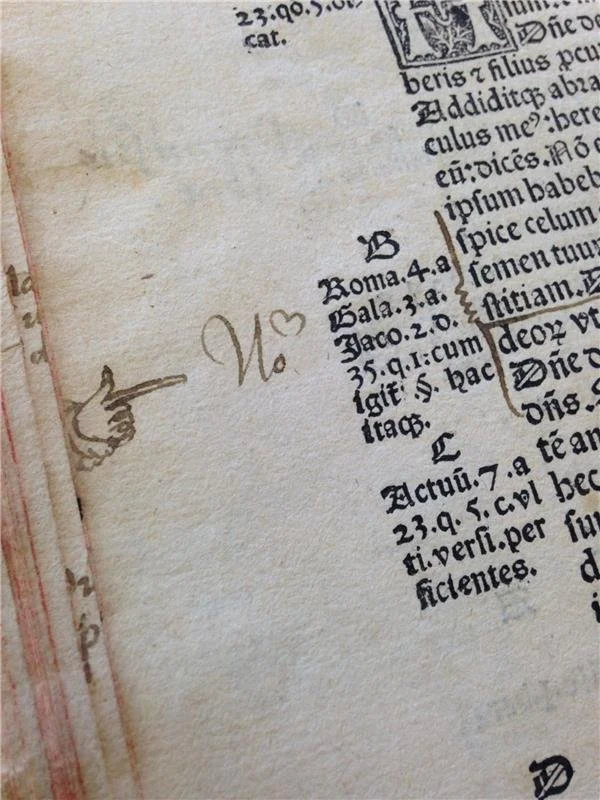 23.q̄o.5.
cat.
Dñe de
beris ⁊ filius ꝓcu
Addiditqꝫ abra
culus meꝰ: here
eū: dicēs. Nō e
ipsum habeb
spice celum
semen tuum
stitiam. D
deoꝝ vt
Dñe d
dñs. S
tē an
hec
sur
d
B
Roma.4.a
Gala.3.a.
Jaco.2.d.
35.q.1: cum
igit̄ .§. hac
itaqꝫ.
No
C
Actuū.7.a
23.q.5.c.vl
ti.versi.per
ficientes.
D